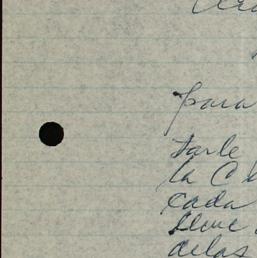 para
tarle
la C
cada
lleve
delos